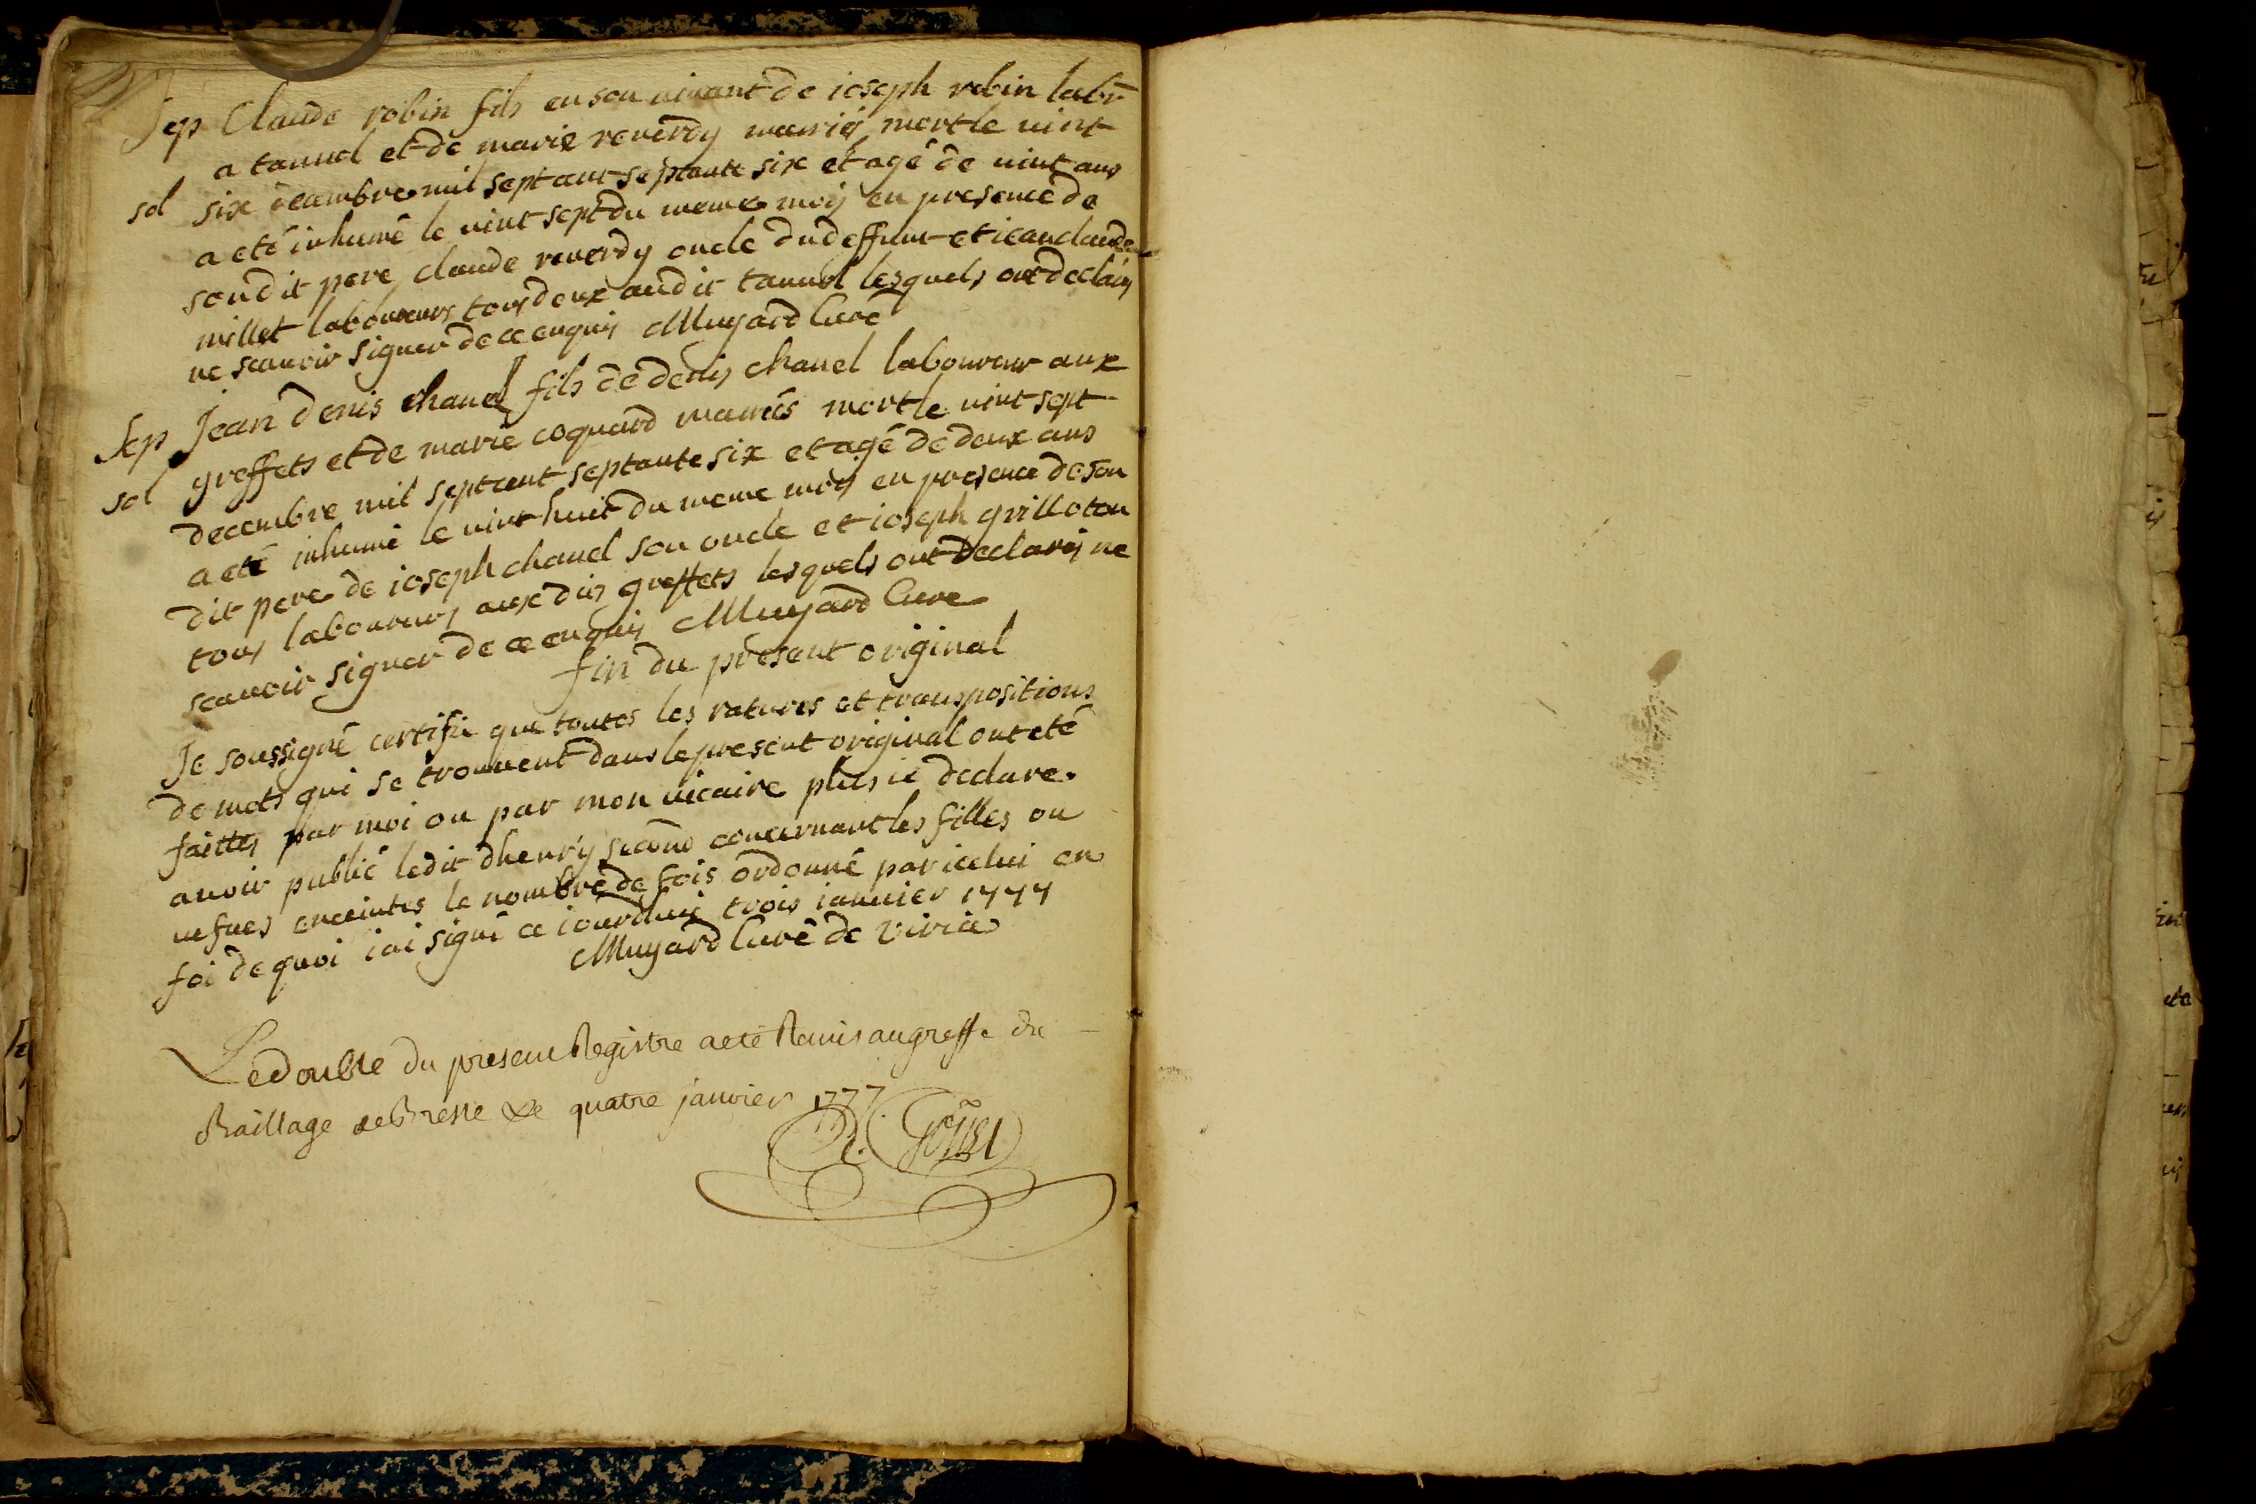 Sep Claude robin fils en son vivant de ioseph robin labr
a tannel et de marie reverdy mariés mort le vint
sol six decembre mil sept cent septante six et agé de vint ans
a eté inhumé le vint sept du meme mois en presence de
son dit pere, claude reverdy oncle du deffunt et iean claude
millet laboureurs tous deux au dit tannel lesquels ont declarés
ne scauoir signer de ce enquis Muyard Curé
Sep Jean denis chanel fils de denis chanel laboureur aux
greffets et de marie coquard mariés mort le vint sept
sol decembre mil sept cent septante six et agé de deux ans
a eté inhumé le vint huit du meme mois en presence de son
dit pere de ioseph chanel son oncle et ioseph grilloton
tous laboureurs aux dits greffets lesquels ont declarés ne
scauoir signer de ce enquis Muyard Cure
fin du present original
Je soussigné certifie que toutes les ratures et transpositions
de mots qui se trouvent dans le present original ont eté
faittes par moi ou par mon vicaire plus ie declare
auoir publié ledit dhenry second concernant les filles ou
uefues enceintes le nombre de fois ordonné par icelui en
foi de quoi iai signé ce iourdhui trois ianuier 1777
Muyard Curé de Viria
Le double du present Registre a eté Remis au greffe du
Baillage de Bresse Le quatre janvier 1777